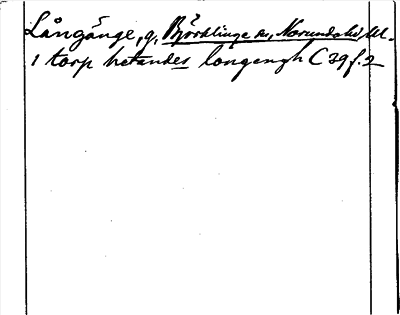 Långänge, g, Björklinge sn, Norunda hd, Upl.
1 torp hetandes longengh C 29 f. 2